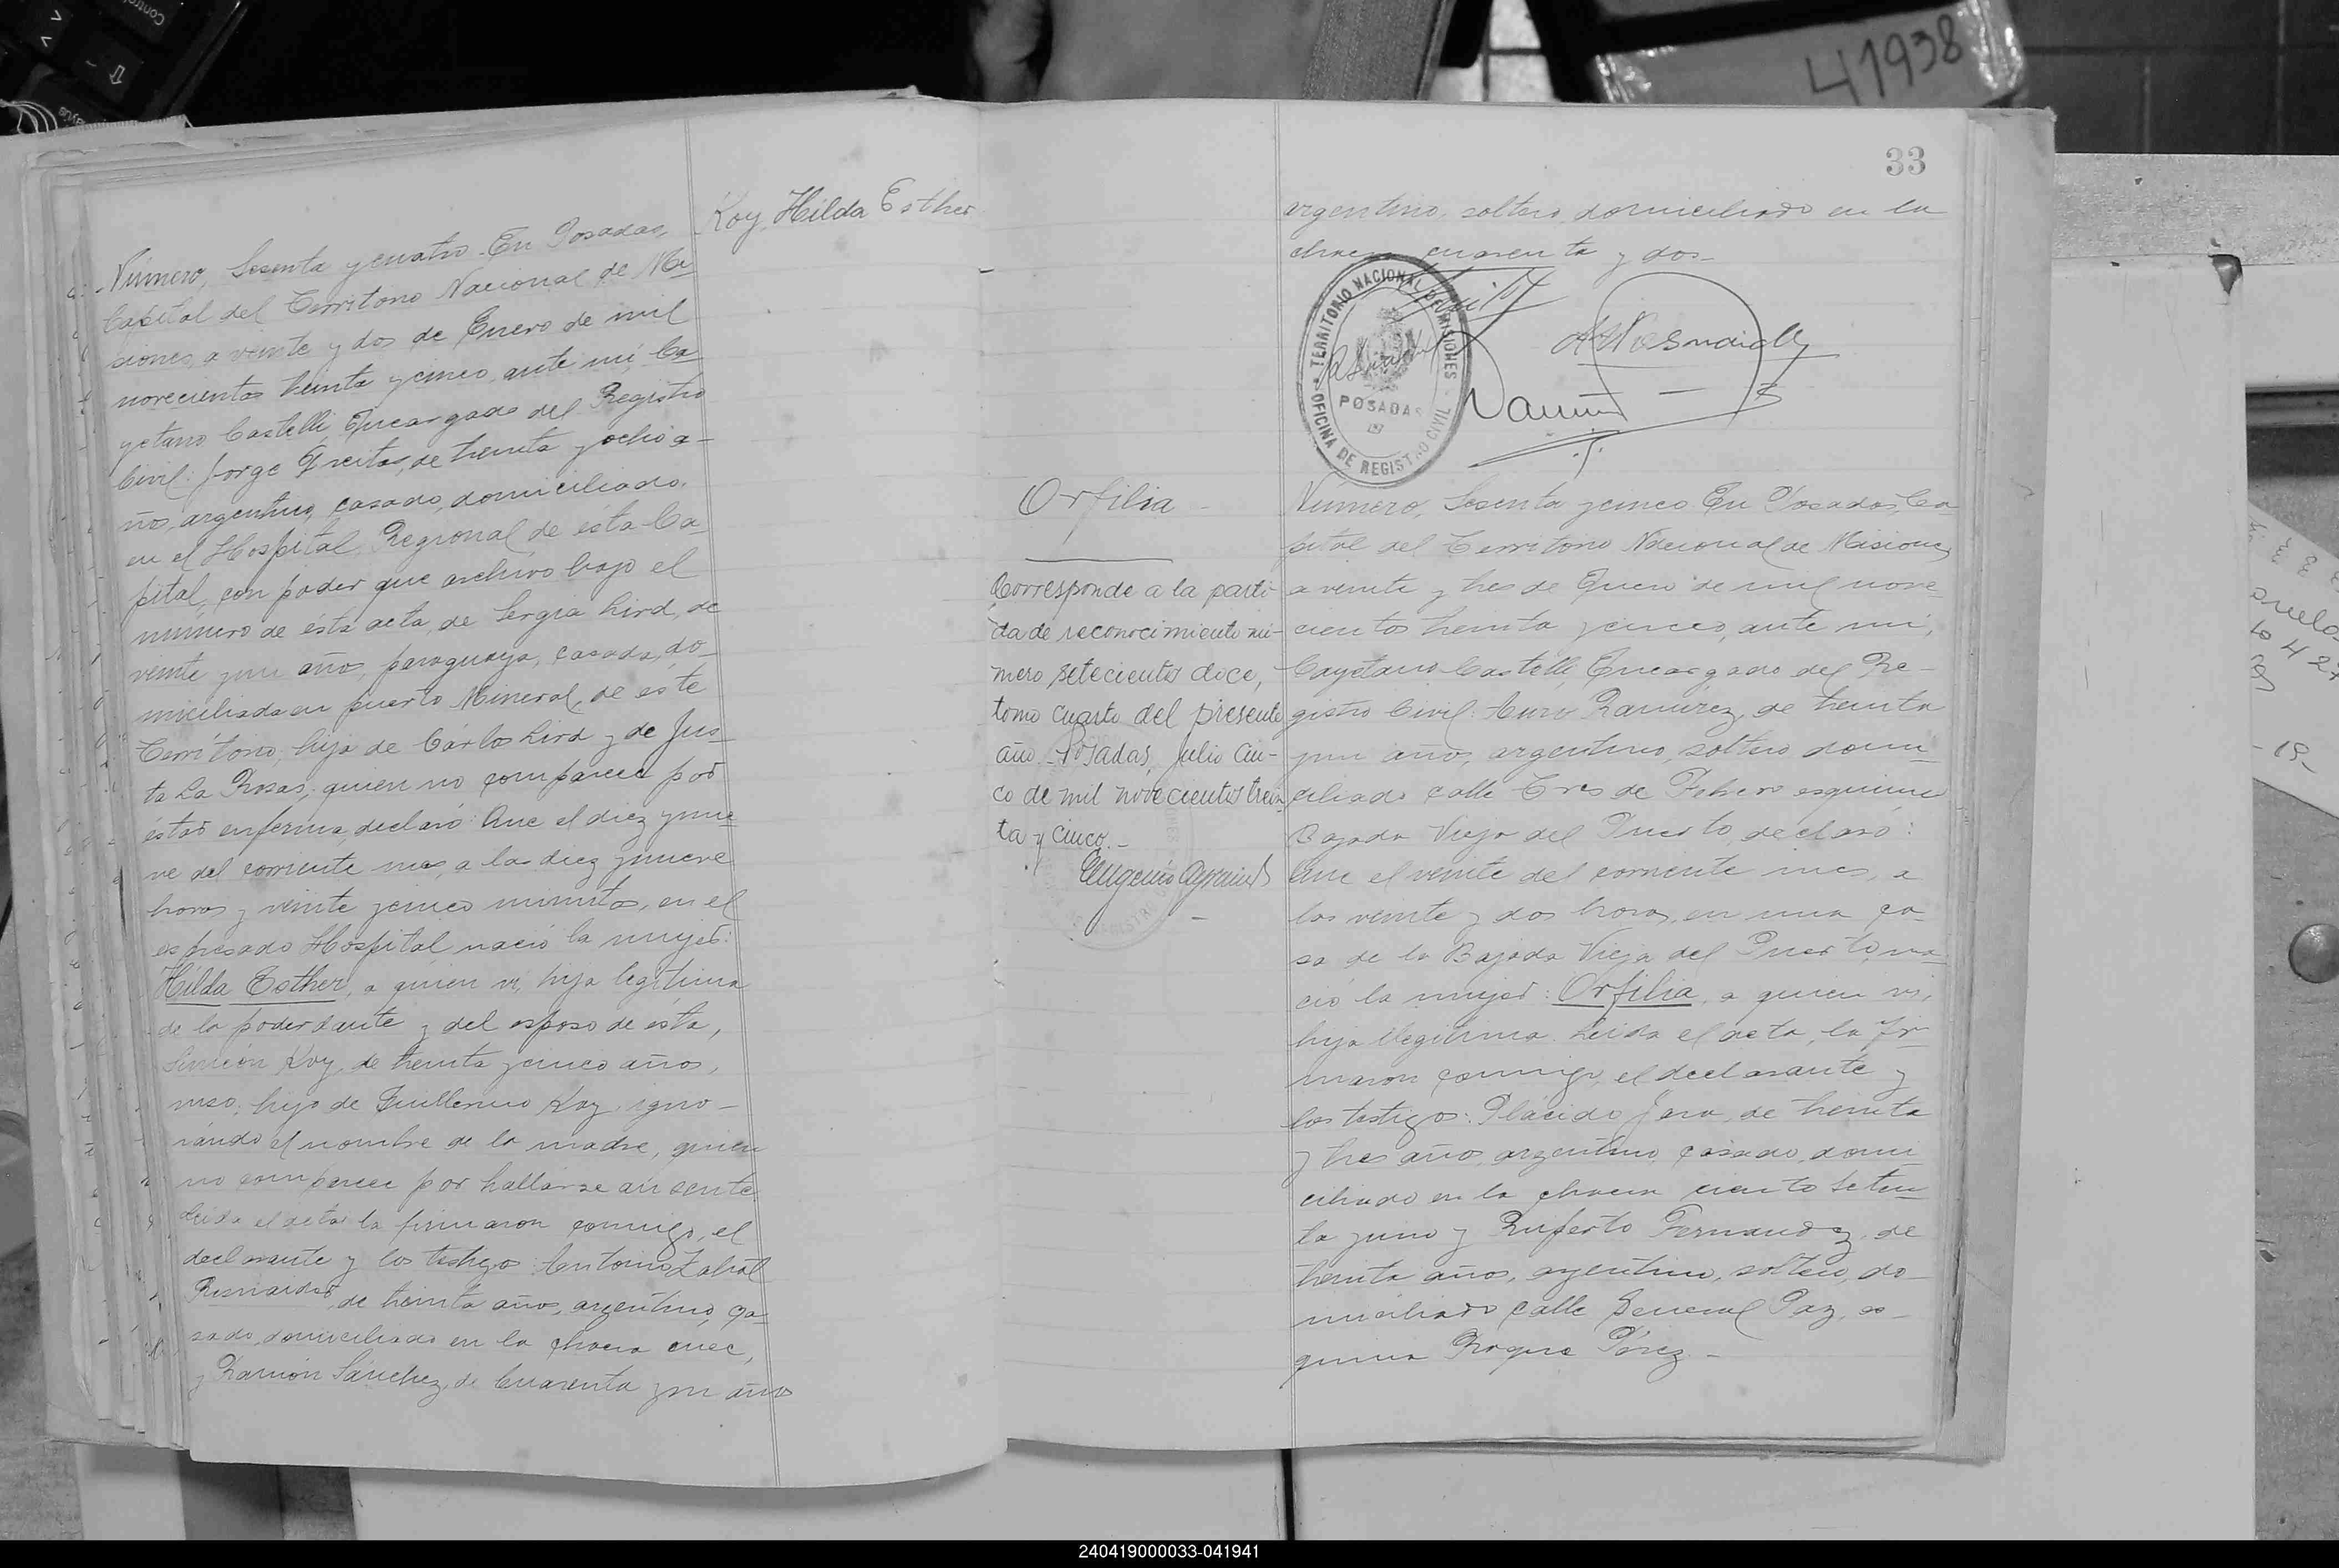 Koy Hilda Esther
Número, Sesenta y cuatro. En Posadas,
Capital del Territorio Nacional de Mi
siones, a veinte y dos de Enero de mil
novecientos treinta y cinco, ante mí, Ca
yetano Castelli, Encargado del Registro
Civil: Jorge Freitas, de treinta y ocho a-
ños, argentino, casado, domiciliado,
en el Hospital Regional de ésta Ca
pital, con poder que archivo bajo el
número de ésta acta, de Sergia Lird, de
veinte y un años, paraguaya, casada, do-
miciliada en puerto Mineral, de este
Territorio, hija de Cárlos Lird y de Jus-
ta La Rosas, quien no comparece por
estar enferma, declaró: Que el diez y nue
ve del corriente mes, a las diez y nueve
horas y veinte y cinco minutos, en el
espresado Hospital nació la mujer:
Hilda Esther, a quien vi, hija legítima
de la poderdante y del esposo de ésta,
Simeón Koy, de treinta y cinco años,
ruso, hijo de Guillermo Koy, igno-
rándo el nombre de la madre, quien
no comparece por hallarse ausente
Leida el acta la firmaron conmigo, el
declarante y los testigos: Antonio Zabal
de treinta años, argentino, ca-
sado, domiciliado en la chacra once,
y Ramón Sánchez, de cuarenta y un años
33
argentino, soltero, domiciliado en la
chacra cuarenta y dos-
TERRITORIO NACIONAL DE MISIONES
POSADAS
OFICINA DE REGISTRO CIVIL
Orfilia
Corresponde a la parti-
da de reconocimiento nú-
mero setecientos doce,
tomo cuarto del presente
año. Posadas, julio cin-
co de mil novecientos trein
ta y cinco.-
Número, Sesenta y cinco En Posadas, Ca
pital del Territorio Nacional de Misiones,
a veinte y tres de Enero de mil nove
cientos treinta y cinco, ante mí,
Cayetano Castelli, Encargado del Re-
gistro Civil: Ramírez, de treinta
y un años, argentino, soltero, domi
ciliado calle Tres de Febrero esquina
Bajada Vieja del Puerto, declaró:
Que el veinte del corriente mes, a
las veinte y dos horas, en una ca-
sa de la Bajada Vieja del Puerto, na
ció la mujer: Orfilia, a quien vi,
hija ilegítima. Leida el acta, la fir
maron conmigo, el declarante y
los testigos: Plácido Jara, de treinta
y tres años, argentino, casado, domi
ciliado en la chacra ciento seten
ta y uno y Ruperto Fernandez, de
treinta años, argentino, soltero, do-
miciliado calle General Paz, es-
quina Roque Pérez.-
41938
240419000033-041941